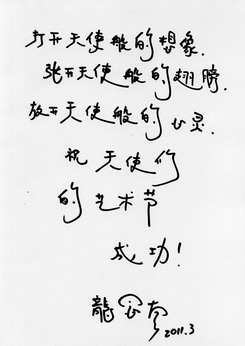 打开天使般的想象.
张开天使般的翅膀.
放开天使般的心灵.
祝天使们
的艺术节
成功！
龍
2011.3